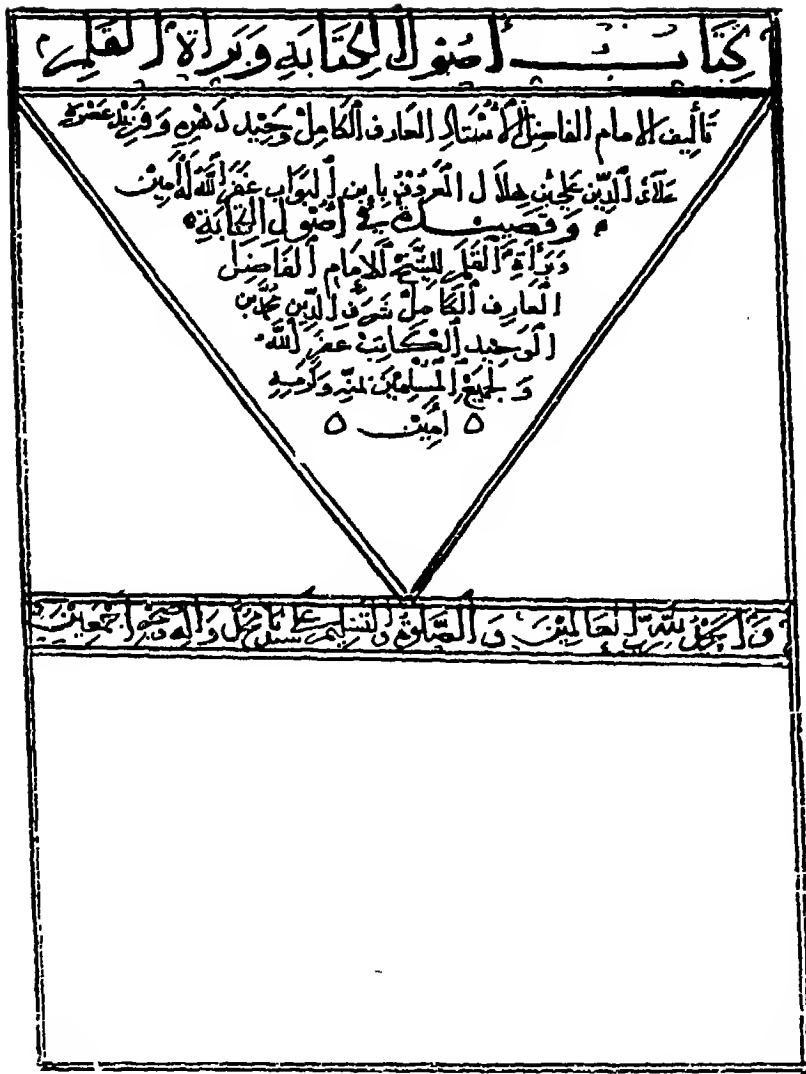 كِتَابُ أُصُولِ الْكِتَابَةِ وَبَرَاةِ الْقَلَمِ
تَأْلِيفُ الإمام الفاضل الأُسْتَاذ العارف الكَامِلْ وَحِيْد دَهْرِهِ وَفَرِيْد عَصْرِهِ
عَلَاءِ الدِّين عَلي بْن هِلَال الْمَعْرُوفْ بِابن البَوَاب غَفَرَ اللّٰه لَهُ آمِيْن
وَقَصِيدَة فِي أُصُول الكِتَابَةِ
وَبَرَاةِ القَلَم لِلشَّيْخ الإمام الفَاضِل
العَارِف الكَامِلْ شَرَف الدِّين مُحَمَّد بْن
الوَحِيْد الكَاتِبْ غَفَرَ اللّٰه
وَلِجَمِيْع المُسْلِمِيْن بمَنِّهِ وَكَرَمِهِ
٥ آمِيْن ٥
وَالحَمْدُ لِلّٰهِ رَبِّ العَالَمِيْن وَالصَّلٰوةُ وَالتَّسْلِيْم عَلَى سَيِّدِنَا مُحَمَّد وَآلِهِ وَصَحْبِهِ أَجْمَعِيْن